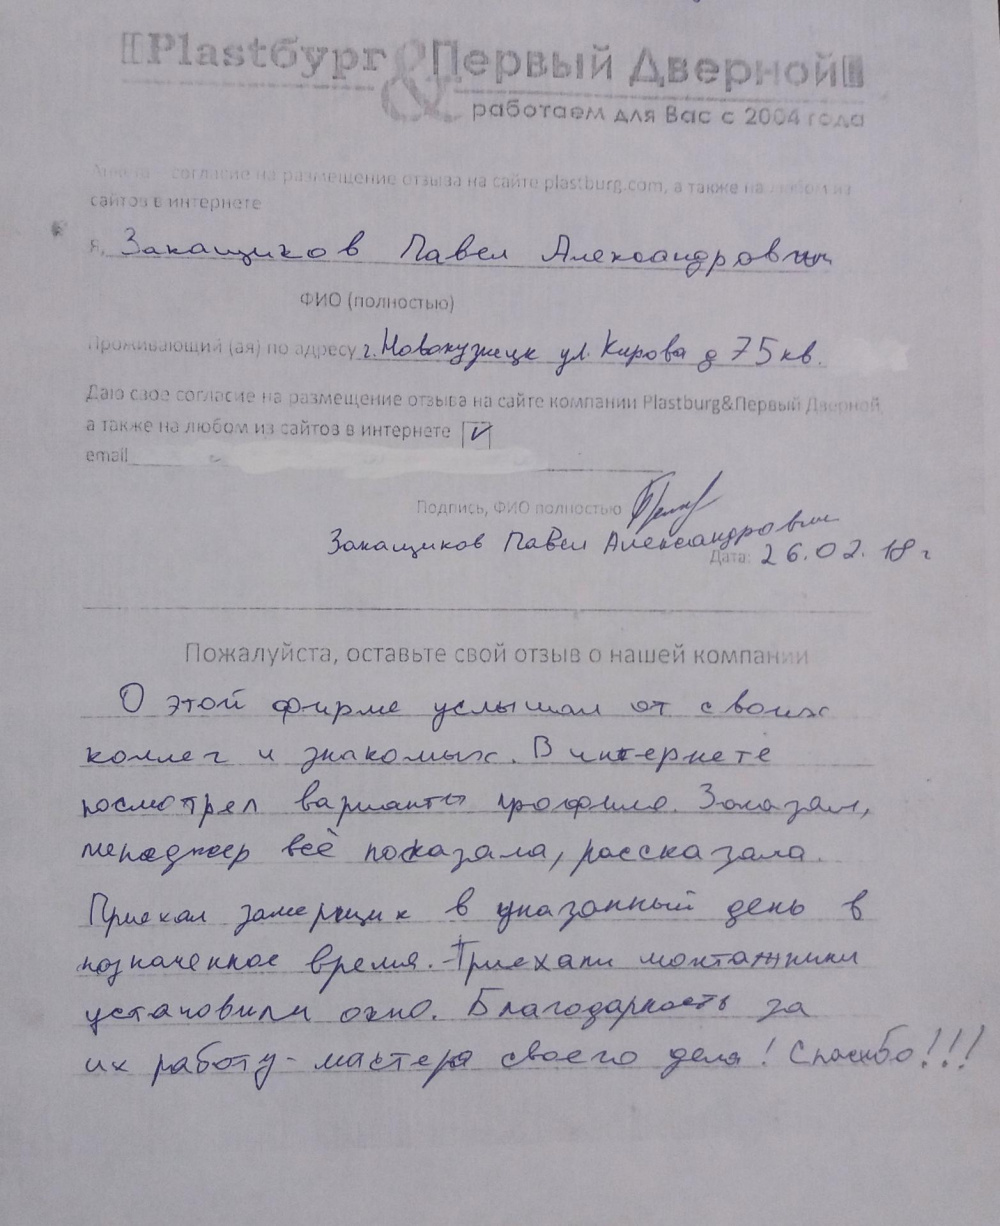 Plastбург & Первый Дверной
работаем для Вас с 2004 года
Анкета – согласие на размещение отзыва на сайте plastburg.com, а также на любом из
сайтов в интернете
я, Закащиков Павел Александрович
ФИО (полностью)
Проживающий (ая) по адресу г. Новокузнецк ул. Кирова д 75 кв.
Даю свое согласие на размещение отзыва на сайте компании Plastburg&Первый Дверной,
а также на любом из сайтов в интернете V
email
Подпись, ФИО полностью
Закащиков Павел Александрович
Дата: 26.02.18 г
Пожалуйста, оставьте свой отзыв о нашей компании
О этой фирме услышал от своих
коллег и знакомых. В интернете
посмотрел варианты профиля. Заказал,
менеджер всё показала, рассказала.
Приехал замерщик в указанный день в
назначенное время. Приехали монтажники
установили окно. Благодарность за
их работу - мастера своего дела! Спасибо!!!